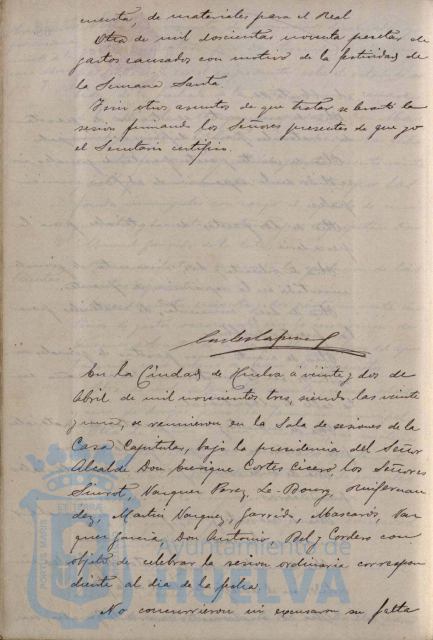 cuenta, de materiales para el Real
Otra de mil doscientas noventa pesetas de
gastos causados con motivo de la festividad de
la Semana Santa
Y sin otros asuntos de que tratar se levantó la
sesion firmando los Señores presentes de que yo
el Secretario certifico.
En la Ciudad de Huelva á veinte y dos de
Abril de mil novecientos tres, siendo las veinte
y una, se reunieron en la Sala de sesiones de la
Casa Capitular, bajo la presidencia del Señor
Alcalde Don Enrique Cortes Cisero, los Señores
Siurot, Vazquez Perez, Le-Bourg, Ruifernan
dez, Martin Vazquez, Garrido, Mascarós, Vaz
quez Garcia, Don Antonio, Bel y Cordero con
objeto de celebrar la sesion ordinaria correspon
diente al dia de la fecha.
No concurrieron ni excusaron su falta
Ayuntamiento de
HUELVA